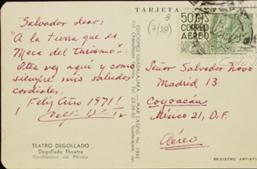 Salvador dear:
"A la tierra que es
Meca del turismo".
Otra vez aquí y como
siempre mis saludos
cordiales.
¡Feliz Año 1971!
TEATRO DEGOLLADO
Degollado Theatre
Guadalajara, Jal. México
TARJETA
50¢
CORREO
AEREO
Señor Salvador Novo
Madrid 13
Coyoacán
México 21, D.F.
Aéreo
REGISTRO